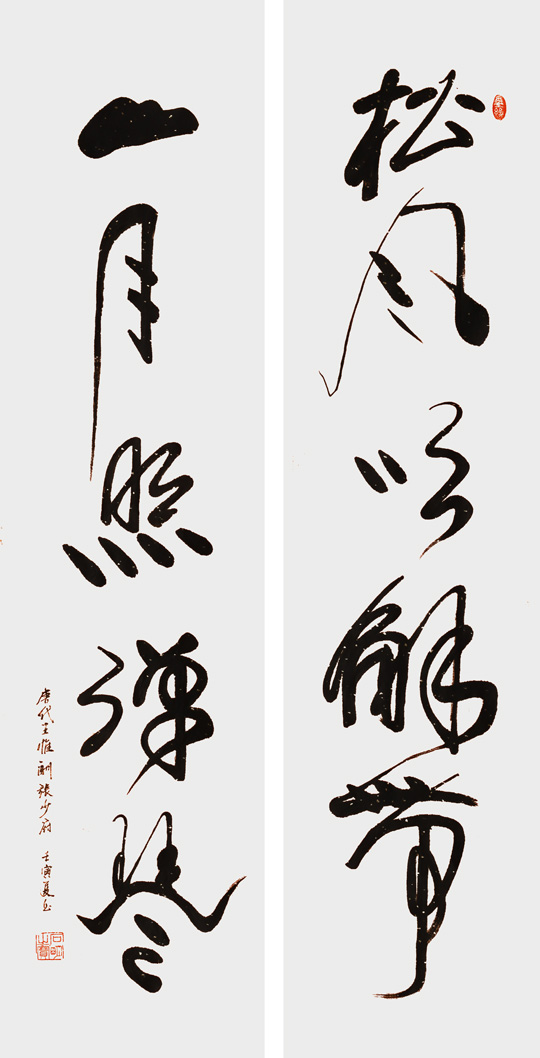 松风吹解带
山月照弹琴
唐代王维酬张少府 壬寅夏